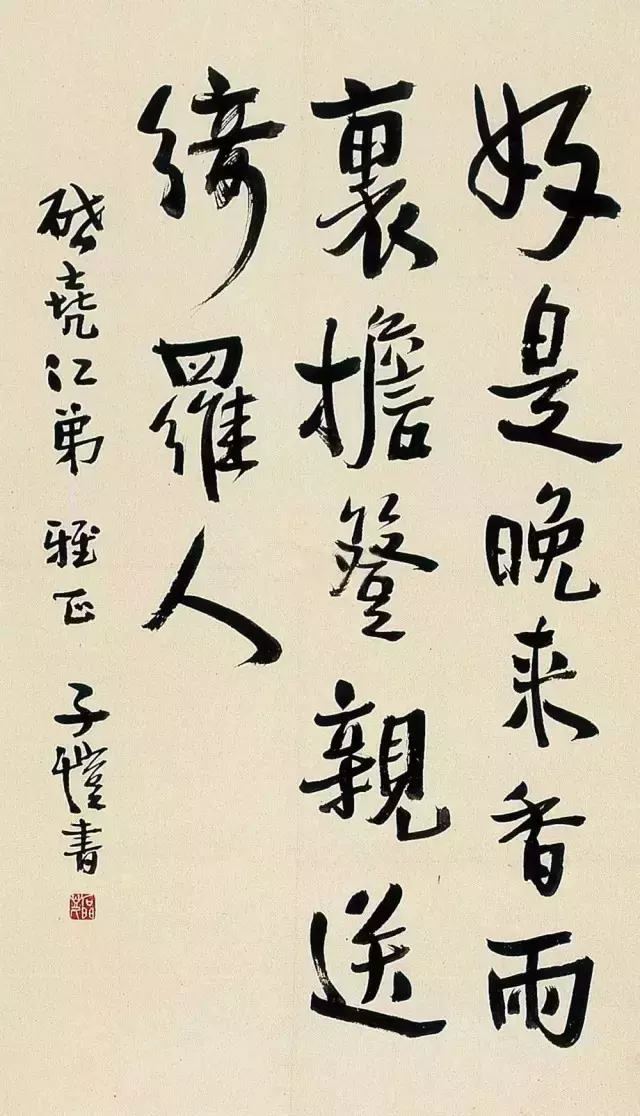 好是晚来香雨
裏擔簦親送
綺羅人
堯仁弟 雅正 子愷書